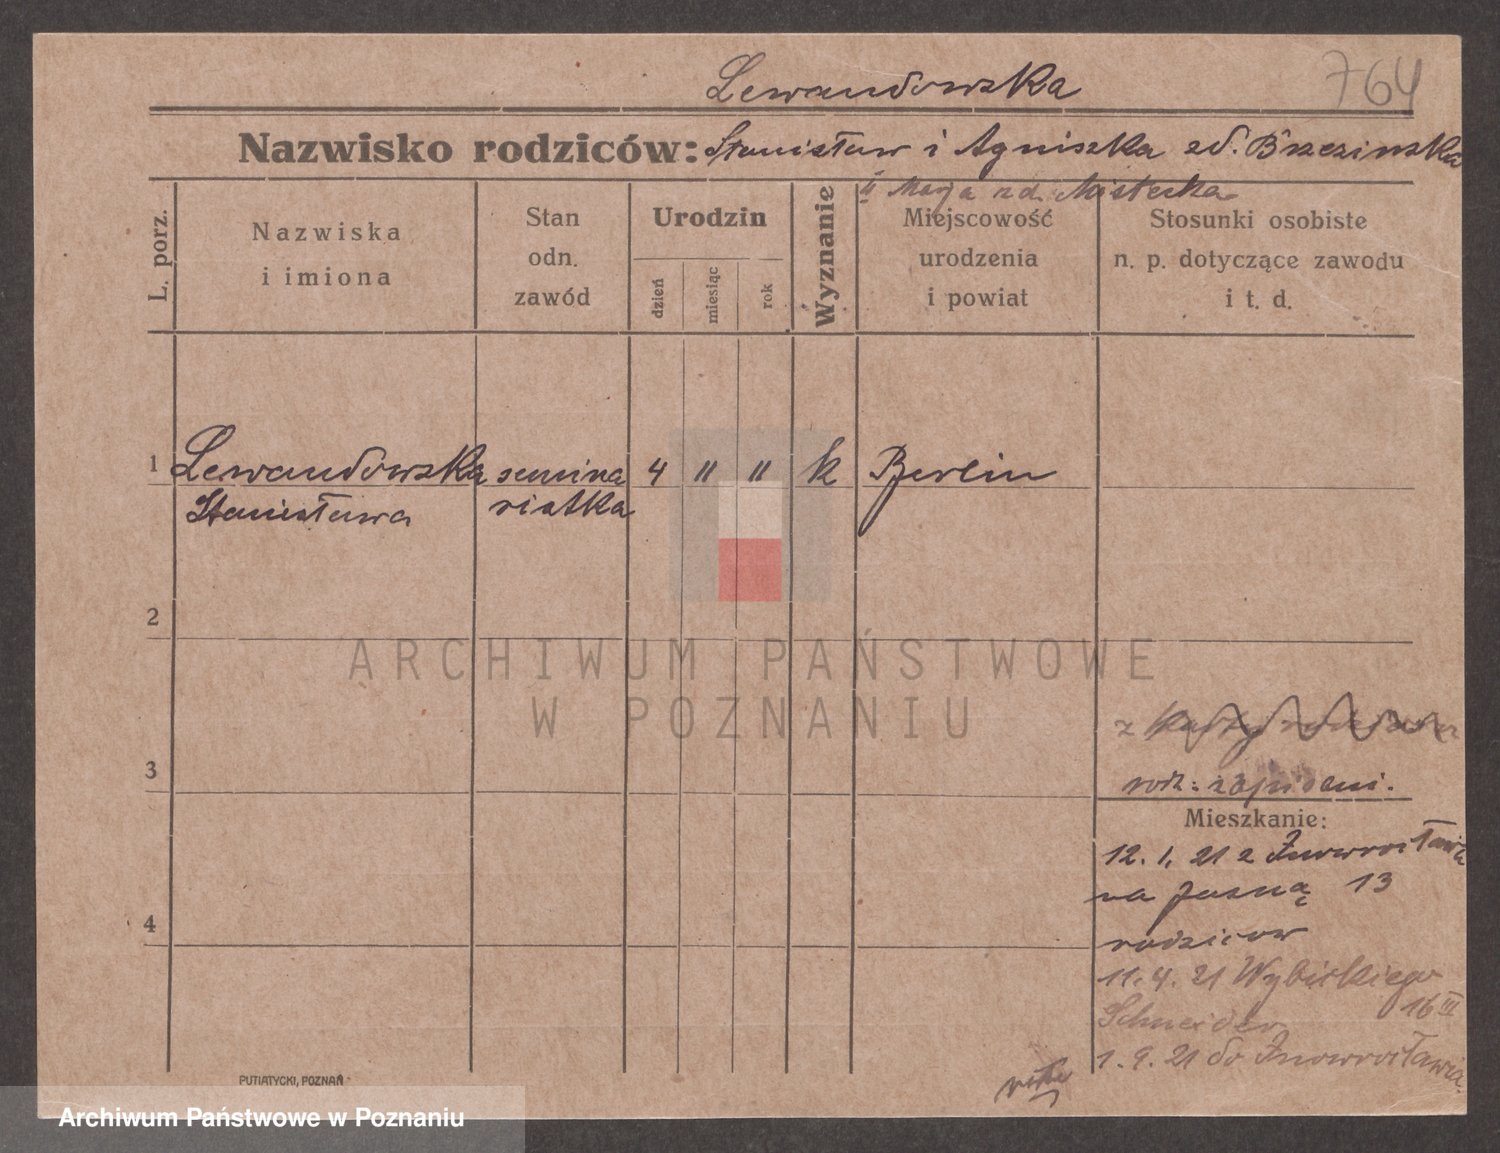 Lewandowska
764
Nazwisko rodziców: Stanisław i Agniszka zd. Brzezinska
II Marja zd. Mistecka
L. porz.
Nazwiska
i imiona
Stan
odn.
zawód
Urodzin
dzień
miesiąc
rok
Wyznanie
Miejscowość
urodzenia
i powiat
Stosunki osobiste
n. p. dotyczące zawodu
i t. d.
1 Lewandowska semina 4 11 11 k Berlin
Stanisława riatka
2
ARCHIWUM PAŃSTWOWE
W POZNANIU
z
3
rodz:
Mieszkanie:
12. 1. 21 z Inowrocławia
na Jasną 13
4
rodziców
11. 4. 21 Wybickiego
16 III
Schneider
1. 9. 21 do Inowrocławia
PUTIATYCKI, POZNAŃ
Archiwum Państwowe w Poznaniu